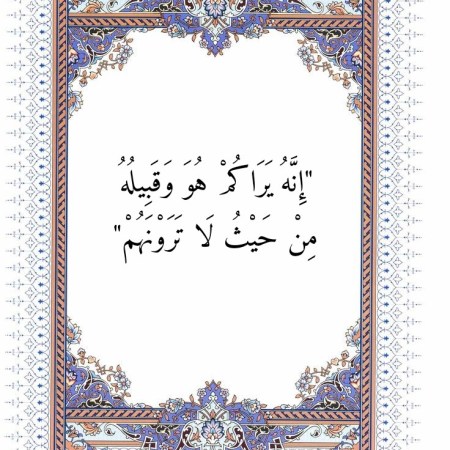 "إِنَّهُ يَرَاكُمْ هُوَ وَقَبِيلُهُ
مِنْ حَيْثُ لَا تَرَوْنَهُمْ"